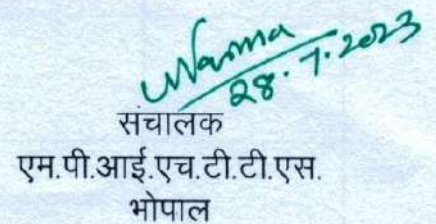 28.7.2023
संचालक
एम.पी.आई.एच.टी.टी.एस.
भोपाल